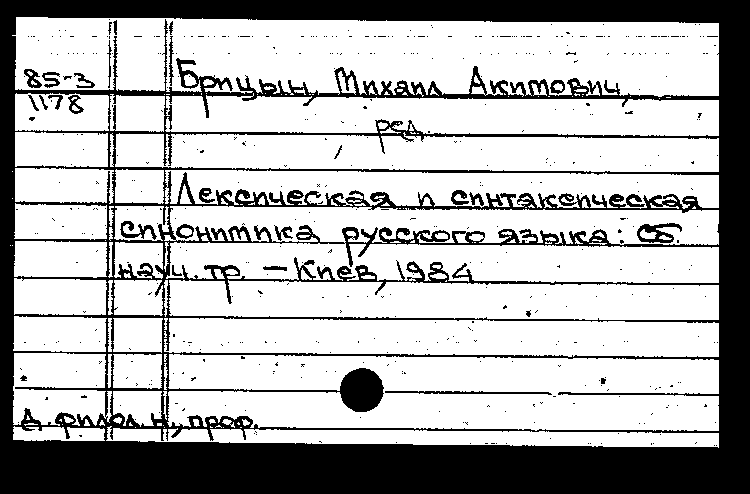 85-3
1178
Брицын, Михаил Акимович,
ред.
Лексическая и синтаксическая
синонимика русского языка: Сб.
науч. тр. – Киев, 1984
д. филол. н., проф.